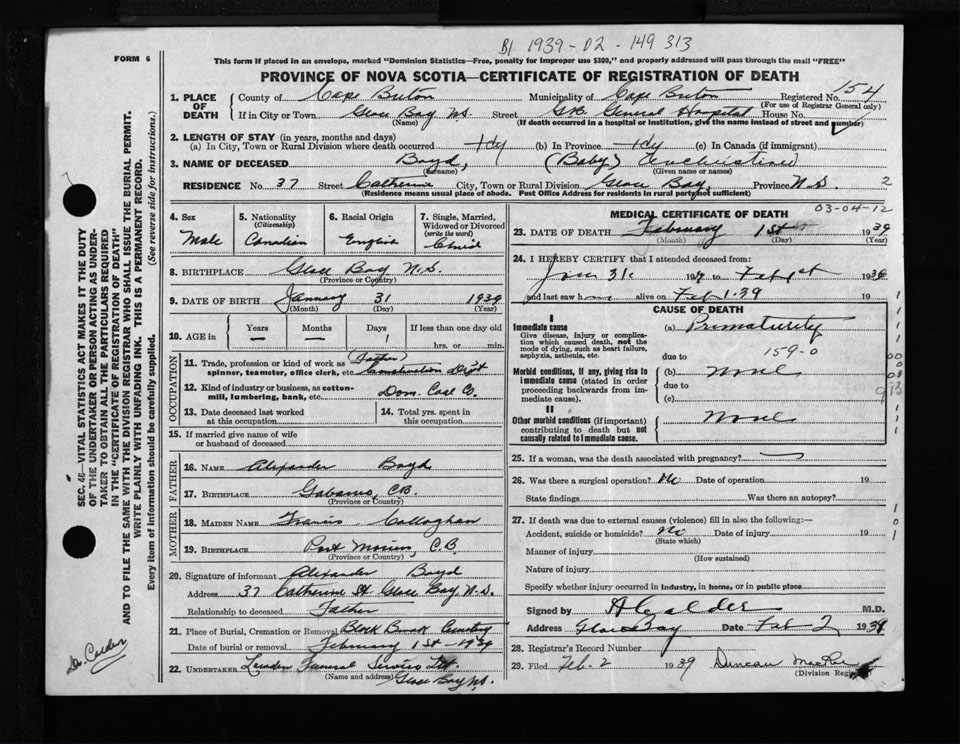 B1 1939-02-149313
FORM 6
This form if placed in an envelope, marked "Dominion Statistics—Free, penalty for improper use $300," and properly addressed will pass through the mail "FREE"
PROVINCE OF NOVA SCOTIA—CERTIFICATE OF REGISTRATION OF DEATH
154
1. PLACE OF DEATH
County of Cape Breton Municipality of Cape Breton Registered No.
(For use of Registrar General only)
If in City or Town Glace Bay N.S. Street General Hospital House No.
(Name) (If death occurred in a hospital or institution, give the name instead of street and number)
2. LENGTH OF STAY (in years, months and days)
(a) In City, Town or Rural Division where death occurred (b) In Province (c) In Canada (if immigrant)
3. NAME OF DECEASED Boyd, (Baby)
(Surname) (Given name or names)
RESIDENCE No. 37 Street Catherine City, Town or Rural Division Glace Bay, Province N.S. 2
(Residence means usual place of abode. Post Office Address for residents in rural parts not sufficient)
4. Sex
Male
5. Nationality
(Citizenship)
Canadian
6. Racial Origin
English
7. Single, Married, Widowed or Divorced
(write the word)
Child
8. BIRTHPLACE Glace Bay N.S.
(Province or Country)
9. DATE OF BIRTH January 31 1939
(Month) (Day) (Year)
10. AGE in
Years Months Days If less than one day old
— — 1 hrs. or min.
OCCUPATION
11. Trade, profession or kind of work as spinner, teamster, office clerk, etc. (Father)
12. Kind of industry or business, as cotton-mill, lumbering, bank, etc. Dom. Coal Co.
13. Date deceased last worked at this occupation
14. Total yrs. spent in this occupation
15. If married give name of wife or husband of deceased
FATHER
16. NAME Alexander Boyd
17. BIRTHPLACE Gabarus, C.B.
(Province or Country)
MOTHER
18. MAIDEN NAME Francis Callaghan
19. BIRTHPLACE Port Morien, C.B.
(Province or Country)
20. Signature of informant Alexander Boyd
Address 37 Catherine St Glace Bay N.S.
Relationship to deceased Father
21. Place of Burial, Cremation or Removal Black Brook Cemetery
Date of burial or removal February 1st 1939
22. UNDERTAKER Funeral Service Ltd.
(Name and address) Glace Bay N.S.
MEDICAL CERTIFICATE OF DEATH
03-04-12
23. DATE OF DEATH February 1st 1939
(Month) (Day) (Year)
24. I HEREBY CERTIFY that I attended deceased from:
Jan 31 19 to Feb 1st 1939
and last saw h alive on Feb 1. 39 19
CAUSE OF DEATH
I
Immediate cause
Give disease, injury or complication which caused death, not the mode of dying, such as heart failure, asphyxia, asthenia, etc.
(a) Prematurity
due to 159-0
Morbid conditions, if any, giving rise to immediate cause (stated in order proceeding backwards from immediate cause).
(b) None
due to
(c)
II
Other morbid conditions (if important) contributing to death but not causally related to immediate cause.
None
25. If a woman, was the death associated with pregnancy?
26. Was there a surgical operation? No Date of operation 19
State findings Was there an autopsy?
27. If death was due to external causes (violence) fill in also the following:—
Accident, suicide or homicide? No Date of injury 19
(State which)
Manner of injury
(How sustained)
Nature of injury
Specify whether injury occurred in industry, in home, or in public place
Signed by A Calder M.D.
Address Glace Bay Date Feb 2 1939
28. Registrar's Record Number
29. Filed Feb. 2 1939 Duncan
(Division Registrar)
SEC. 46—VITAL STATISTICS ACT MAKES IT THE DUTY
OF THE UNDERTAKER OR PERSON ACTING AS UNDER-
TAKER TO OBTAIN ALL THE PARTICULARS REQUIRED
IN THE "CERTIFICATE OF REGISTRATION OF DEATH"
AND TO FILE THE SAME WITH THE DIVISION REGISTRAR WHO SHALL ISSUE THE BURIAL PERMIT.
WRITE PLAINLY WITH UNFADING INK. THIS IS A PERMANENT RECORD.
Every item of information should be carefully supplied. (See reverse side for instructions.)